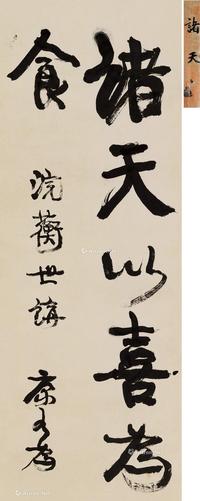 諸天以喜為
食
浣蘅世講 康有為
諸天